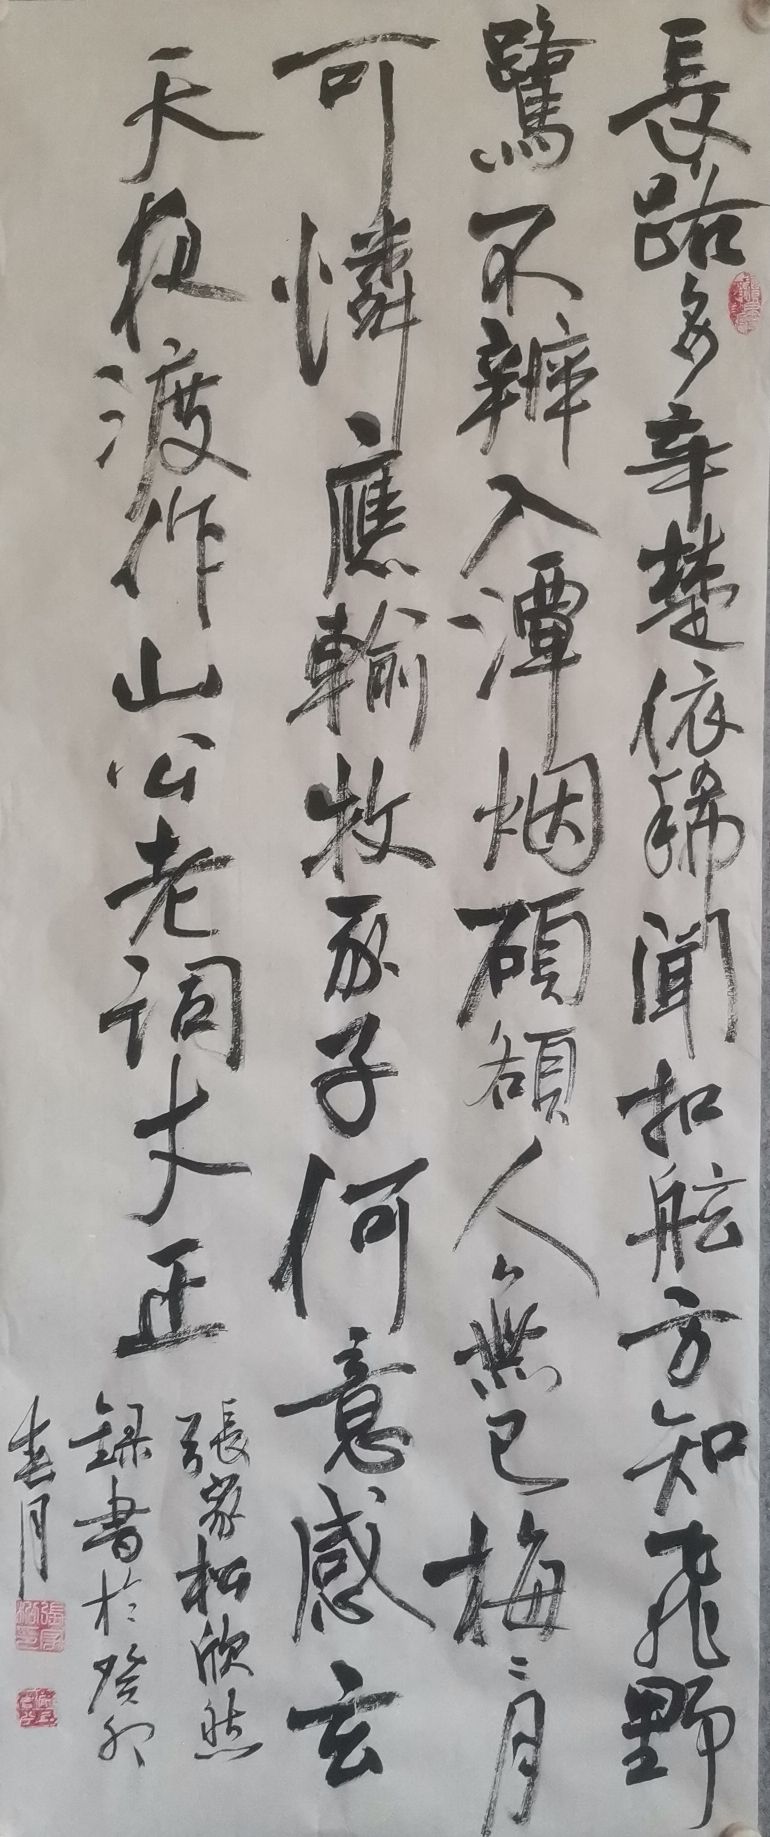 長路多辛楚依稀聞扣舷方知飛野
鷺不辨入潭烟碩頟人無已梅二月
可憐應輸牧豕子何意感玄
天夜渡作山公老詞丈正
張家松欣然
録書於癸卯
春月